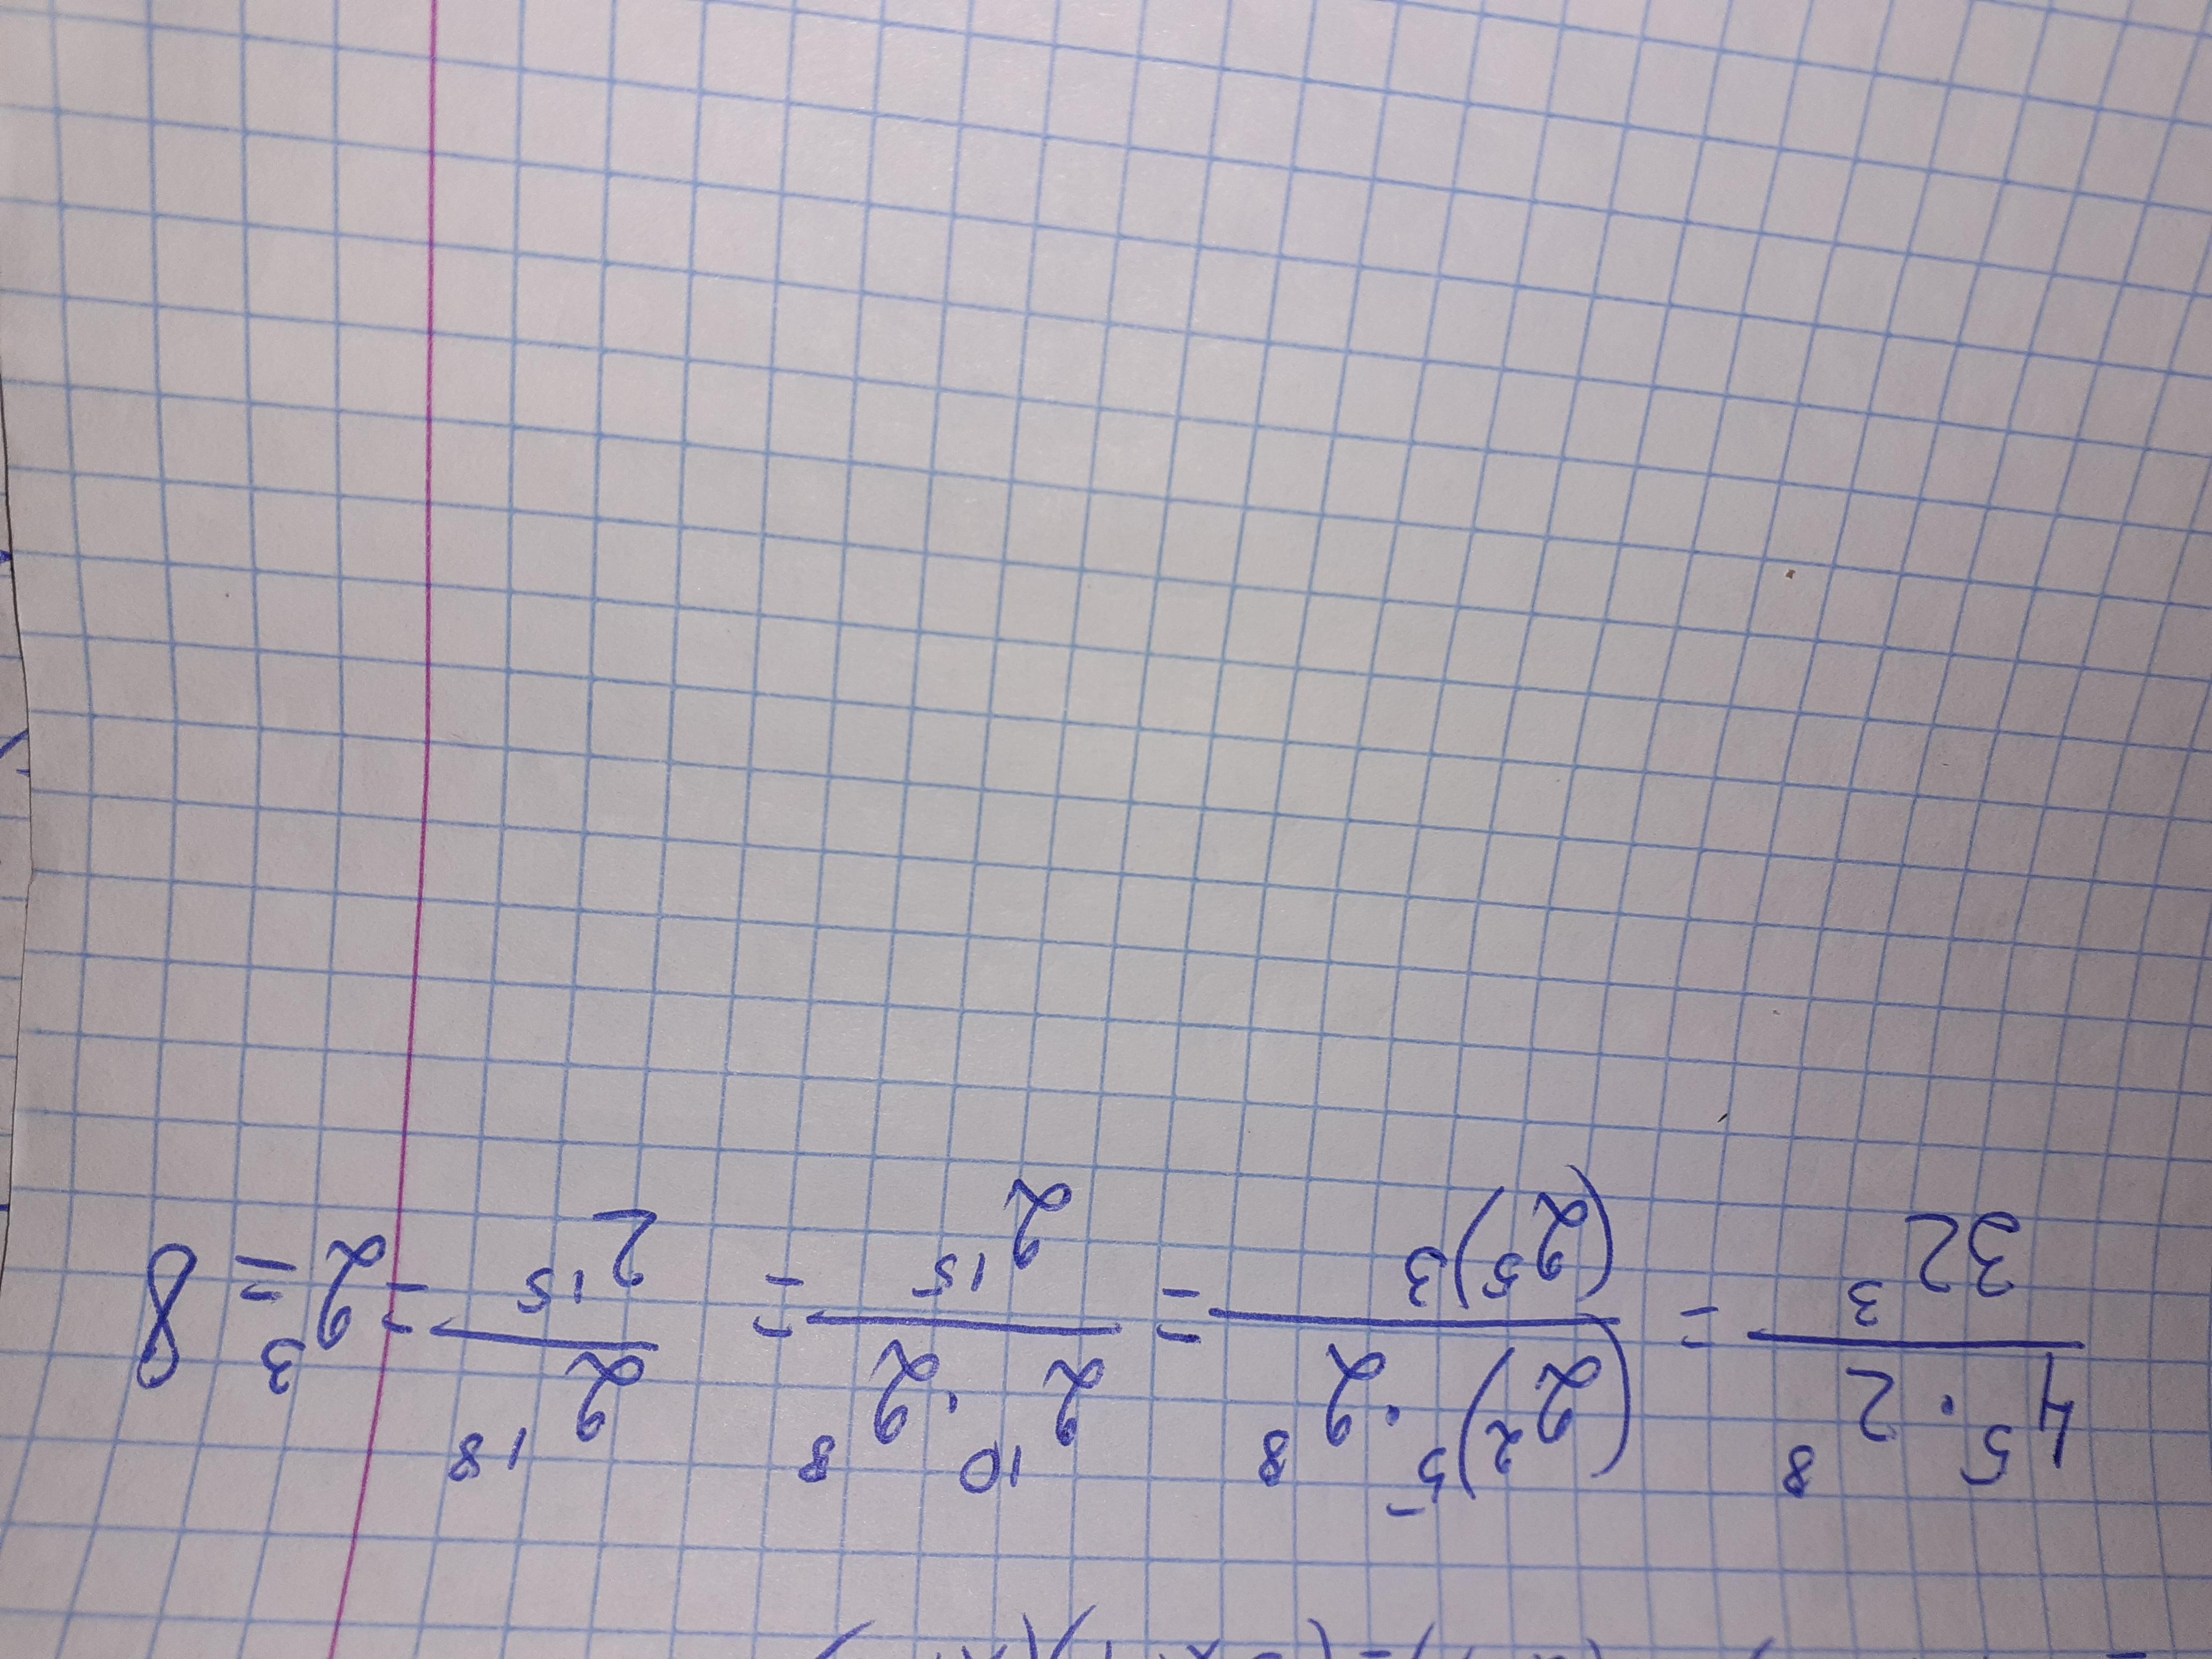 4⁵·2⁸/32³ = (2²)⁵·2⁸/(2⁵)³ = 2¹⁰·2⁸/2¹⁵ = 2¹⁸/2¹⁵ = 2³ = 8